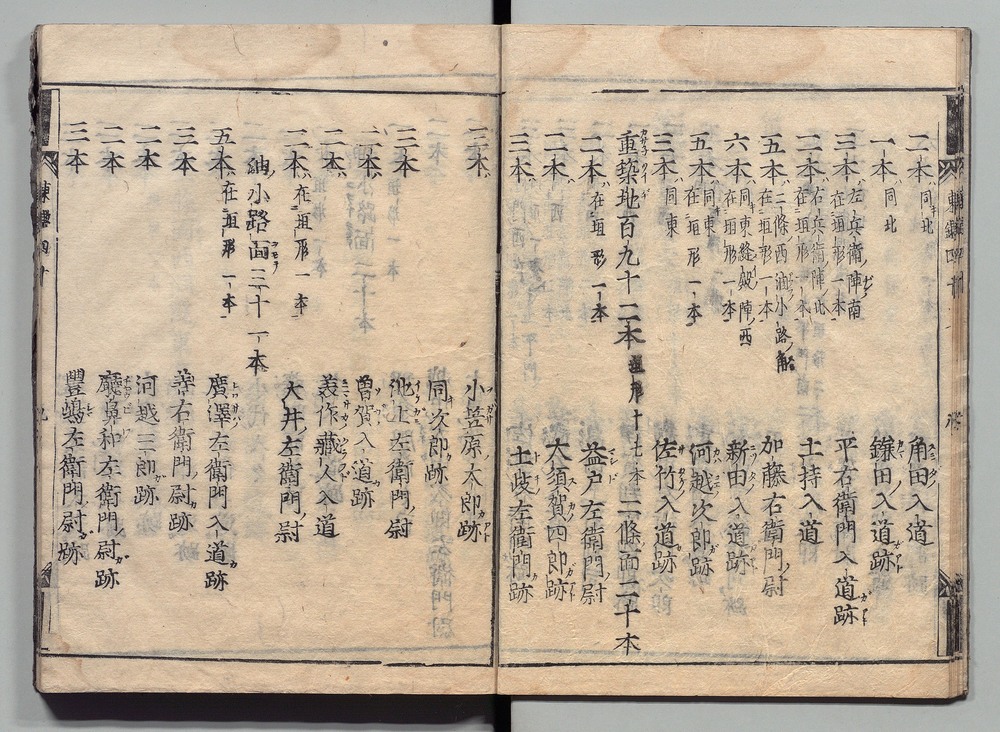 二本 同北 角田入道
一本 同北 鎌田入道跡
三本 左兵衛陣南 在垣形一本 平右衛門入道跡
二本 右兵衛陣北 在垣形一本 土持入道
五本 二條西油小路 在垣形一本 加藤右衛門尉
六本 同東縫殿陣西 在垣形一本 新田入道跡
五本 同東 在垣形一本 河越次郎跡
三本 同東 佐竹入道跡
重築地百九十二本 垣形十七本 二條面二十本
二本 在垣形一本 益戸左衛門尉
二本 大須賀四郎跡
三本 土岐左衛門跡
二本 小笠原太郎跡
同次郎跡
三本 池上左衛門尉
二本 曽賀入道跡
二本 美作蔵人入道
二本 在垣形一本 大井左衛門尉
油小路面三十一本
五本 在垣形一本 廣澤左衛門入道跡
三本 善右衛門尉跡
二本 河越三郎跡
二本 左衛門尉跡
三本 豊嶋左衛門尉跡
東鑑四十 九